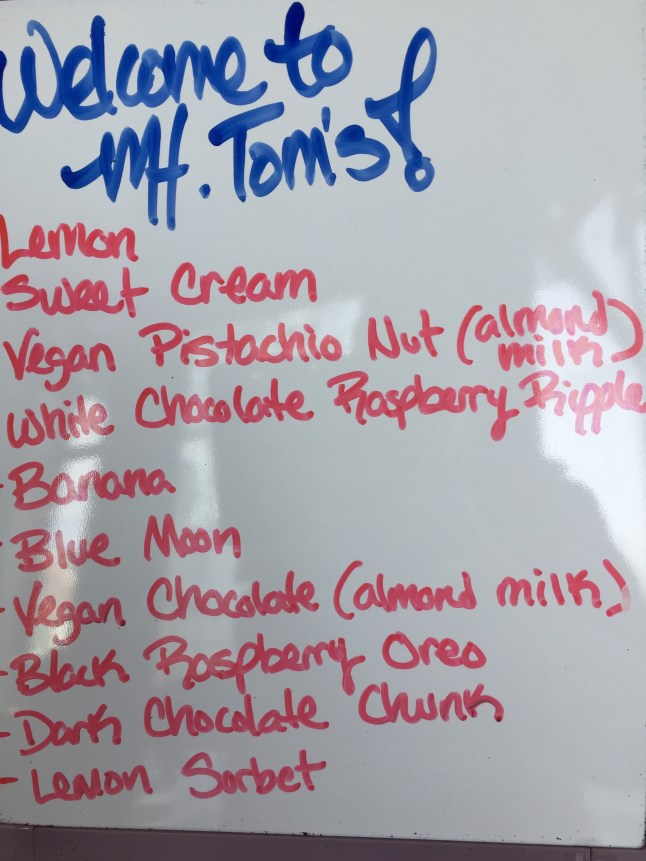 Welcome to
Mt. Tom's!
Lemon
Sweet Cream
Vegan Pistachio Nut (almond milk)
White Chocolate Raspberry Ripple
- Banana
- Blue Moon
- Vegan Chocolate (almond milk)
- Black Raspberry Oreo
- Dark Chocolate Chunk
- Lemon Sorbet